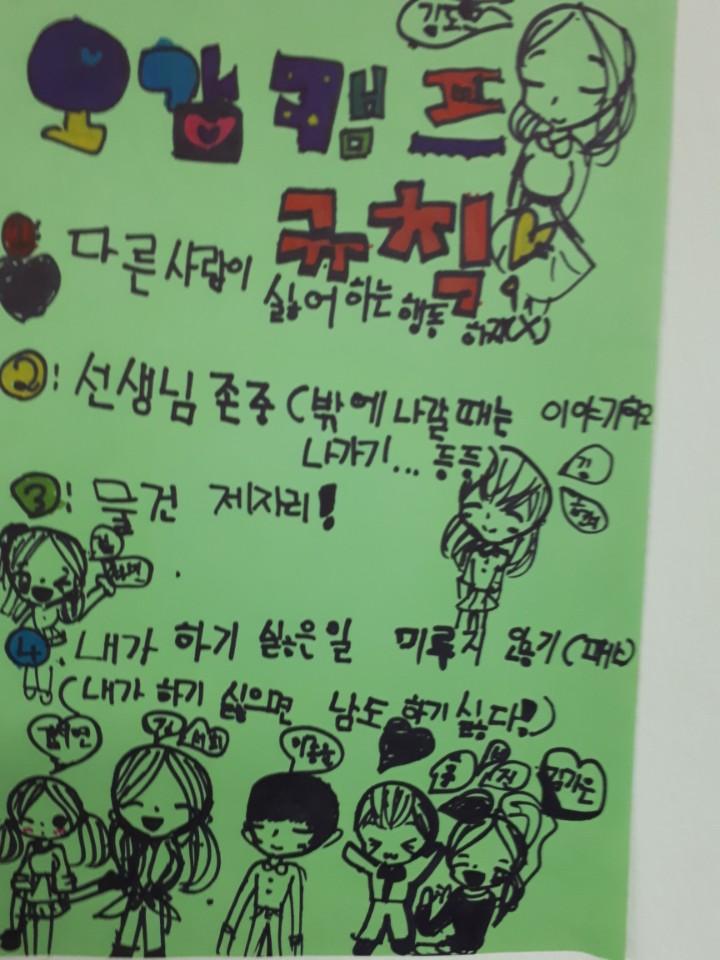 오감캠프
규칙
1 다른 사람이 싫어하는 행동 하지(X)
2: 선생님 존중 (밖에 나갈 때는 이야기하고
나가기... 등등)
3: 물건 제자리!
4: 내가 하기 싫은일 미루지 않기
(내가 하기 싫으면 남도 하기 싫다!!)
김서연
김가은